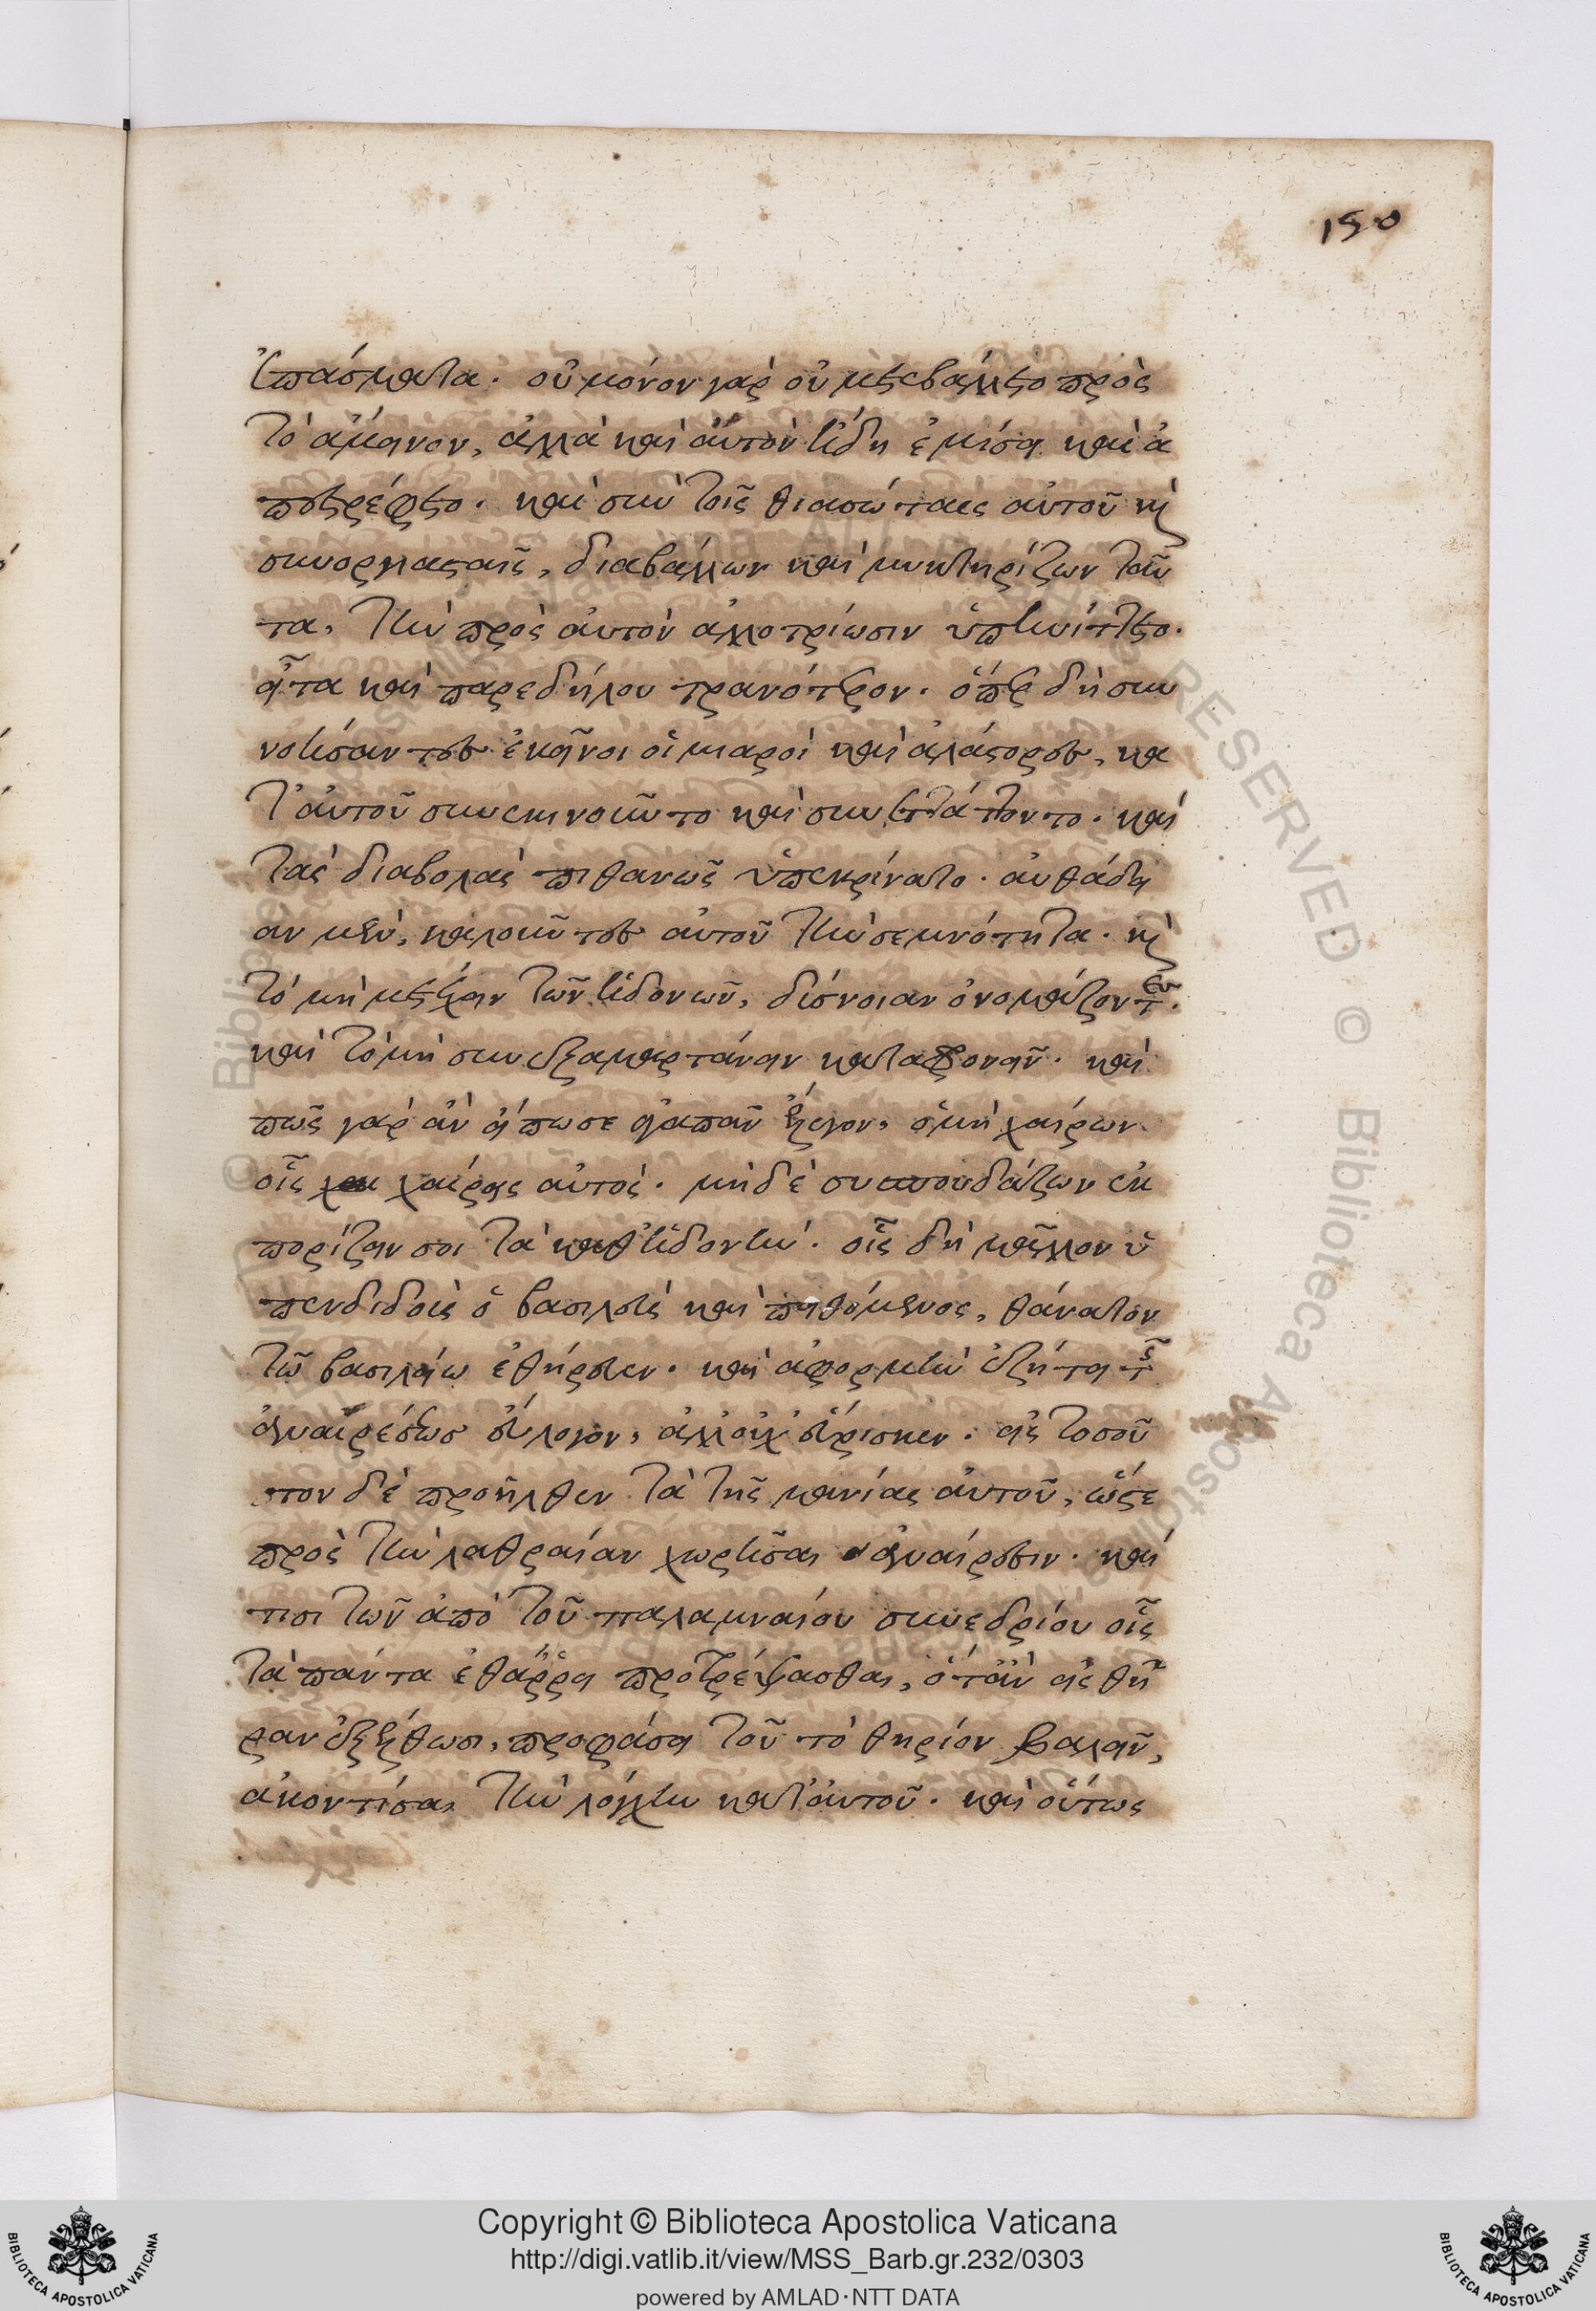 150
ἐπάσματα. οὐ μόνον γὰρ οὐ μετεβάλλετο πρὸς
τὸ ἄμεινον, ἀλλὰ καὶ αὐτὸν ἤδη ἐμίσει καὶ ἀ
πεστρέφετο. καὶ σὺν τοῖς θιασώταις αὐτοῦ κ
συνοργιασταῖς, διαβάλλων καὶ μυκτηρίζων ταῦ
τα, τὴν πρὸς αὐτὸν ἀλλοτρίωσιν ὑπηνίττετο.
εἶτα καὶ παρεδήλου τρανότερον. ὅπερ δὴ συν
νοήσαντες ἐκεῖνοι οἱ μιαροὶ καὶ ἀλάστορες, κα
τ' αὐτοῦ συνεκινοῦντο καὶ συνεπλάττοντο. καὶ
τὰς διαβολὰς πιθανῶς ὑπεκρίνατο. αὐθάδει
αν μὲν, καλοῦντες αὐτοῦ τὴν σεμνότητα. κ
τὸ μὴ μετέχειν τῶν ἡδονῶν, δύσνοιαν ὀνομάζοντες.
καὶ τὸ μὴ συνεξαμαρτάνειν καταφρονεῖν. καὶ
πῶς γὰρ ἂν εἴπωσε ἀγαπᾶν ἔλεγον, ὁ μὴ χαίρων
οἷς χαίρεις αὐτός. μὴ δὲ συσπουδάζων ἐκ
πορίζειν σοι τὰ καθ' ἡδονήν. οἷς δὴ μᾶλλον ὑ
πενδιδοὺς ὁ βασιλεὺς καὶ πειθόμενος, θάνατον
τῷ βασιλείῳ ἐθήρευεν. καὶ ἀφορμὴν ἐζήτει τῆς
ἀναιρέσεως εὔλογον, ἀλλ' οὐχ' εὕρισκεν. εἰς τοσοῦ
τον δὲ προῆλθεν τὰ τῆς μανίας αὐτοῦ, ὥστε
πρὸς τὴν λαθραίαν χωρῆσαι ἀναίρεσιν. καὶ
τισι τῶν ἀπὸ τοῦ παλαμναίου συνεδρίου οἷς
τὰ πάντα ἐθάῤῥει προτρέψασθαι, ὅταν εἰς θή
ραν ἐξέλθωσι, προφάσει τοῦ τὸ θηρίον βαλεῖν,
ἀκοντίσαι τὴν λόγχην κατ' αὐτοῦ. καὶ οὕτως
Copyright © Biblioteca Apostolica Vaticana
http://digi.vatlib.it/view/MSS_Barb.gr.232/0303
powered by AMLAD·NTT DATA
BIBLIOTECA APOSTOLICA VATICANA
BIBLIOTECA APOSTOLICA VATICANA